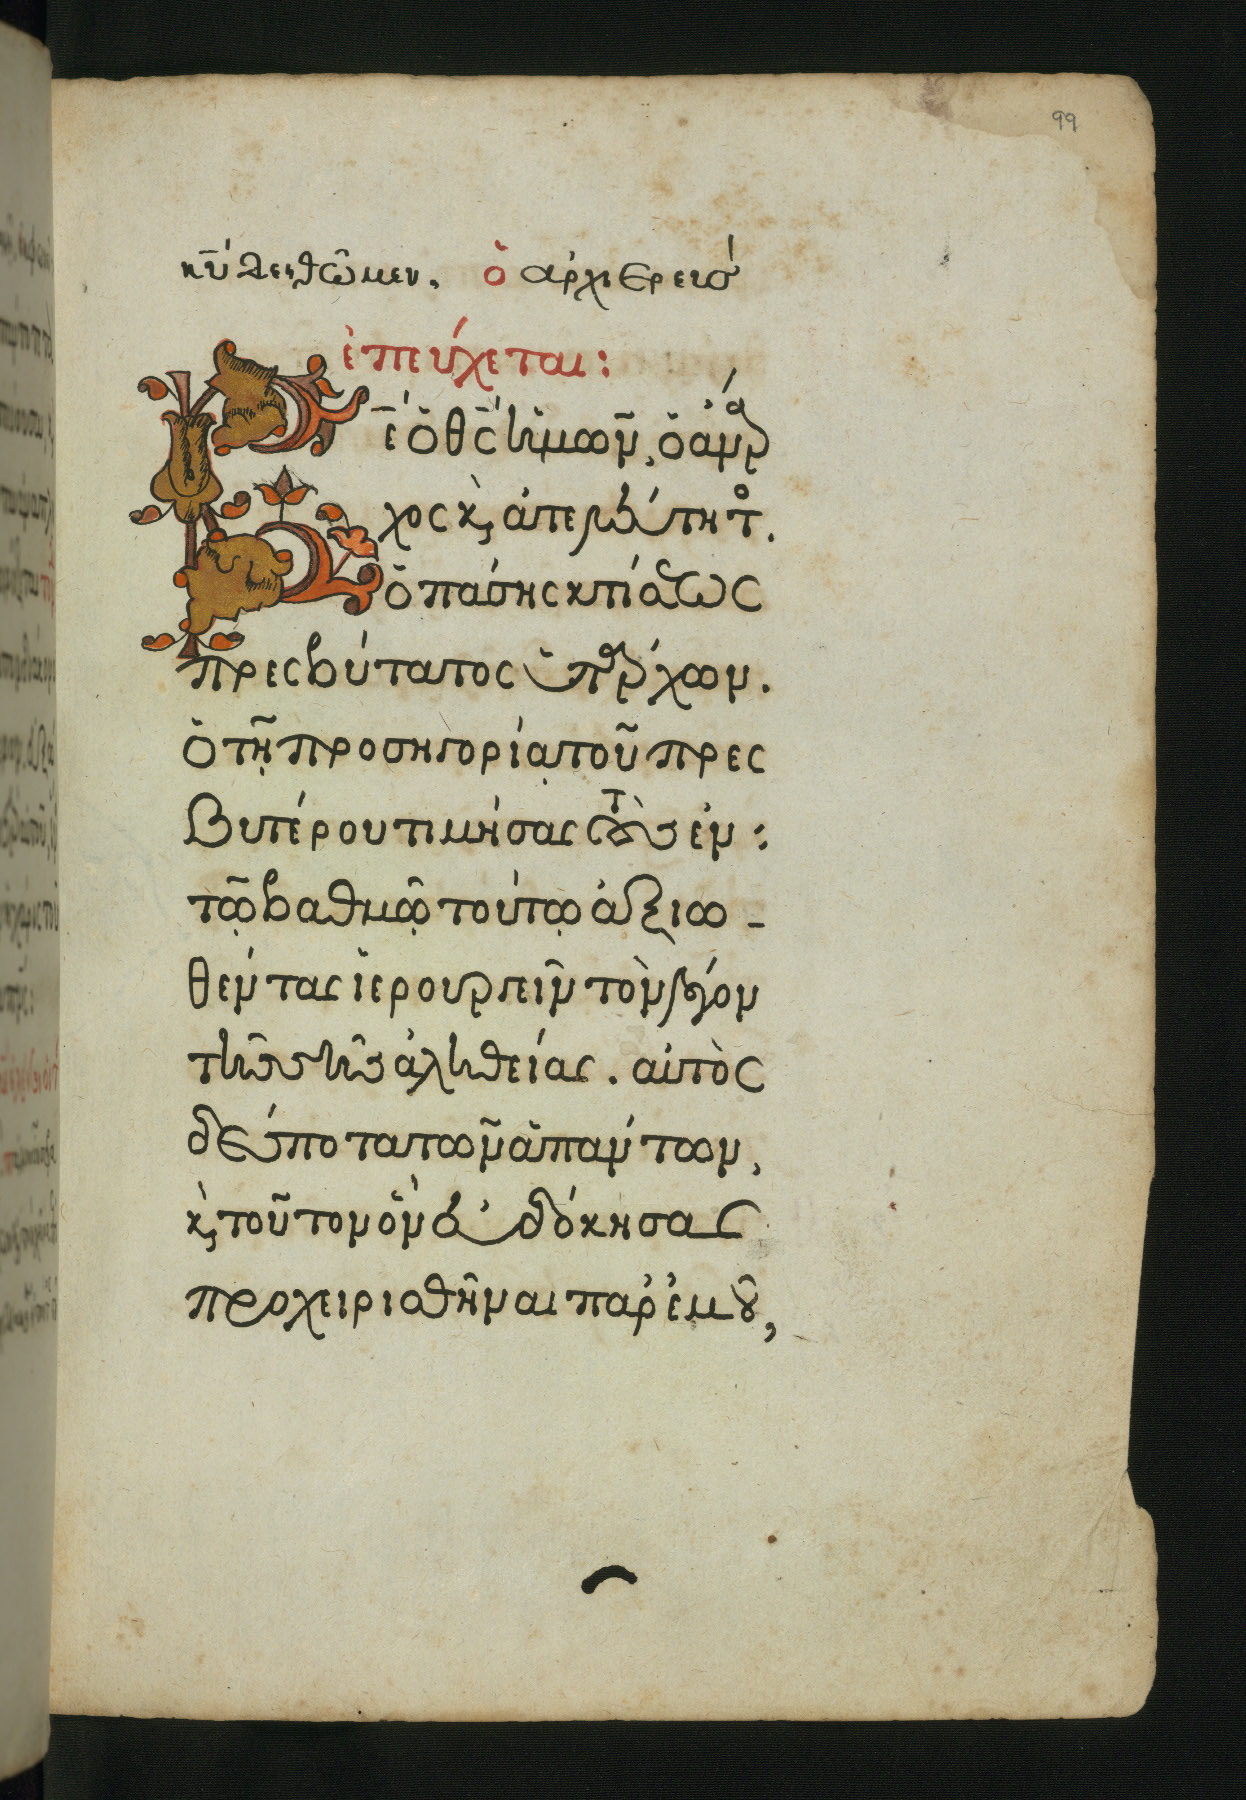 99
κῦ δεηθῶμεν. ὁ ἀρχιερεὺσ
ἐπεύχεται:
Κε ὁ θς ἡμῶν, ὁ ἄναρ
χος κ, ἀτελεύτητ.
ὁ πάσης κτίσεως
πρεσβύτατος ὑπάρχων.
ὁ τῇ προσηγορίᾳ τοῦ πρες
βυτέρου τιμήσας τοὺς ἐν:
τῷ βαθμῷ τούτῳ ἀξιω-
θέντας ἱερουργεῖν τὸν λόγον
τῆς σῆς ἀληθείας. αὐτὸς
δέσποτα τῶν ἁπάντων,
κ, τοῦτον ὃν εὐδόκησας
προχειρισθῆναι παρ' ἐμοῦ,